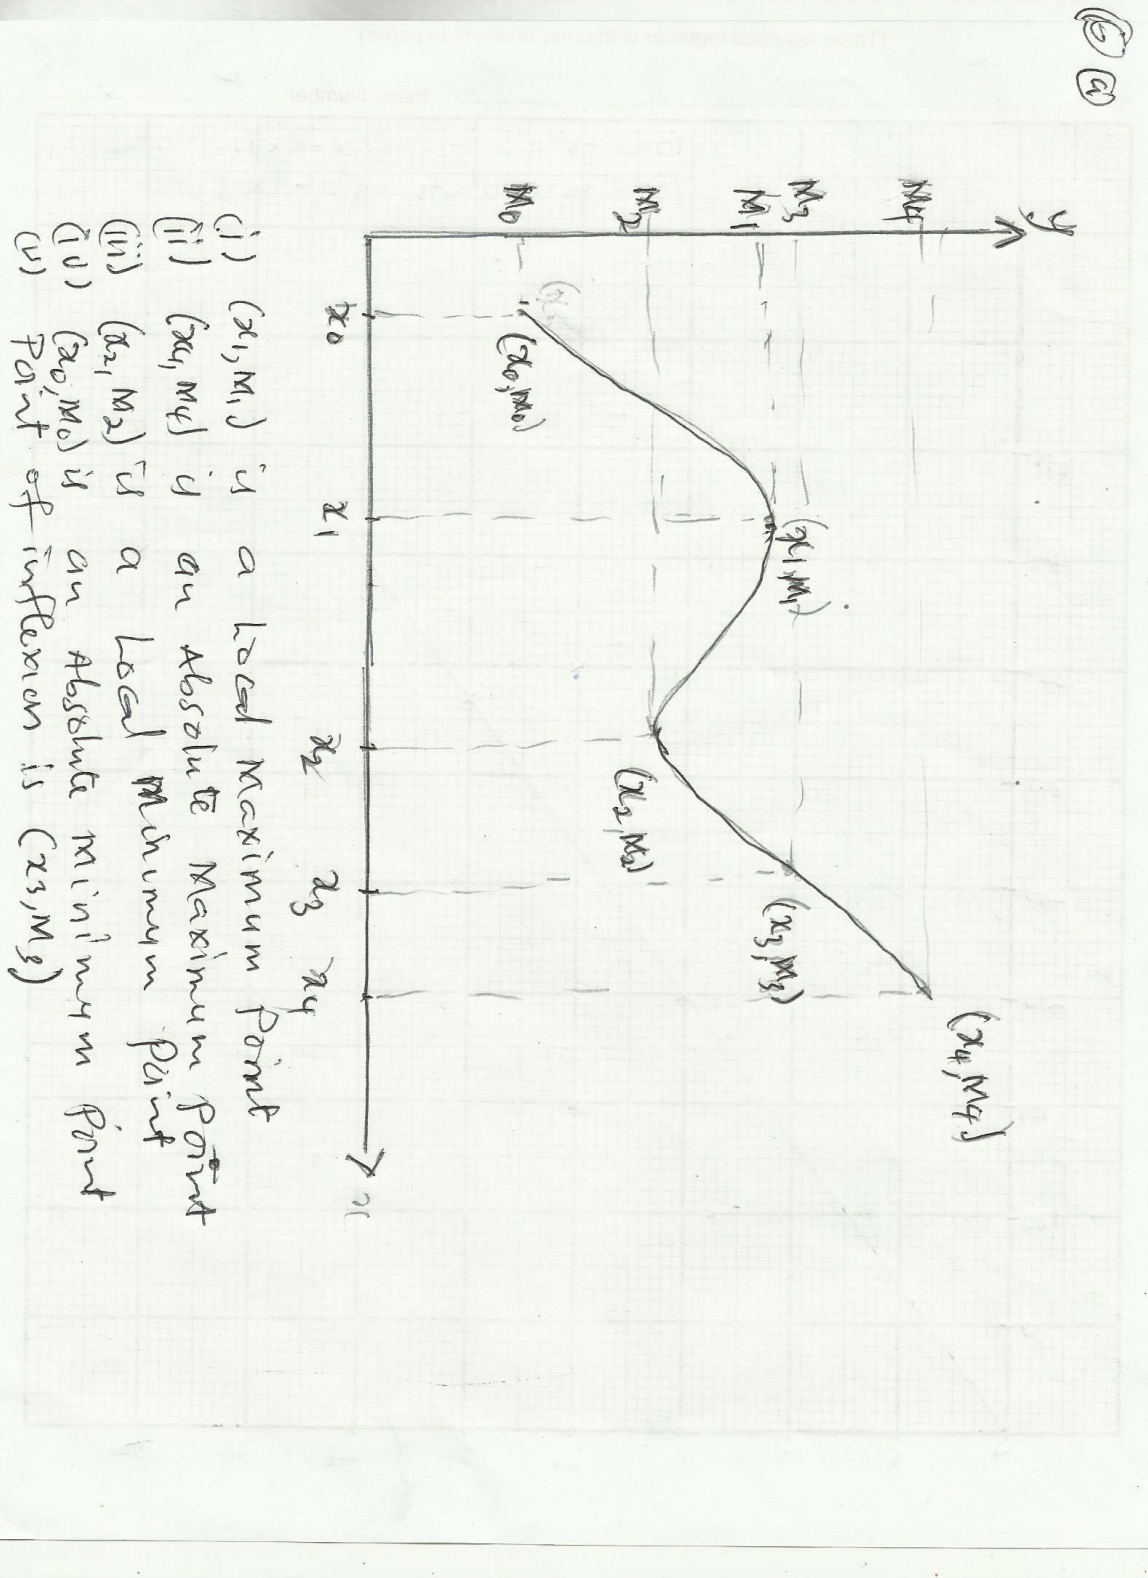 6 (a)
y
M4
M3
M1
M2
M0
(x4, M4)
(x1, M1)
(x3, M3)
(x2, M2)
(x0, M0)
x0
x1
x2
x3
x4
x
(i) (x1, M1) is a Local Maximum Point
(ii) (x4, M4) is an Absolute Maximum Point
(iii) (x2, M2) is a Local Minimum Point
(iv) (x0, M0) is an Absolute minimum Point
(v) Point of inflexion is (x3, M3)